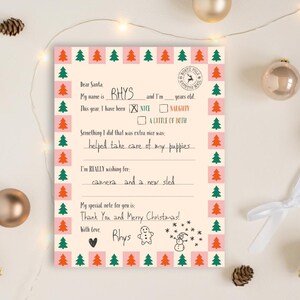 Dear Santa,
My name is RHYS and I'm years old.
This year, I have been X NICE NAUGHTY
A LITTLE OF BOTH
Something I did that was extra nice was:
helped take care of my puppies
I'm REALLY wishing for:
camera and a new sled
My special note for you is:
Thank You and Merry Christmas!
With love,
Rhys